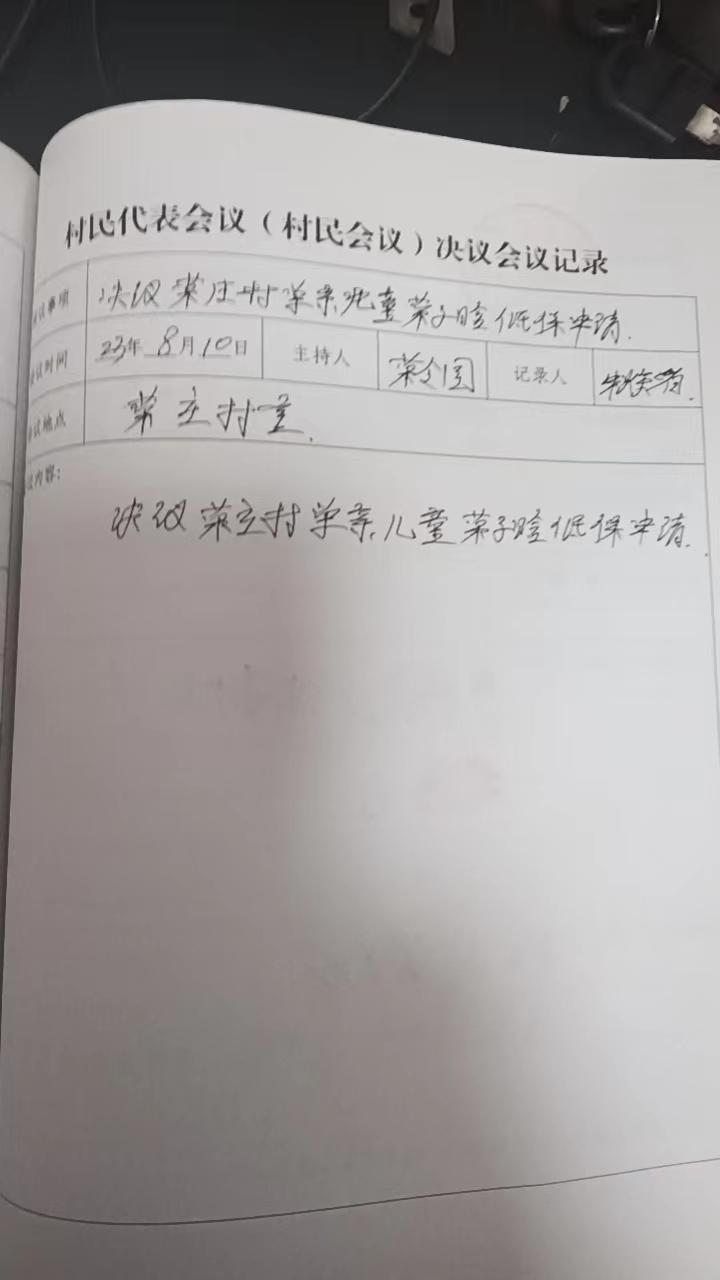 村民代表会议（村民会议）决议会议记录
议事项 决议荣庄村单亲儿童荣子晗低保申请.
议时间 23年 8月10日 主持人 记录人
议地点 荣庄村室.
议内容：
决议荣庄村单亲儿童荣子晗低保申请.